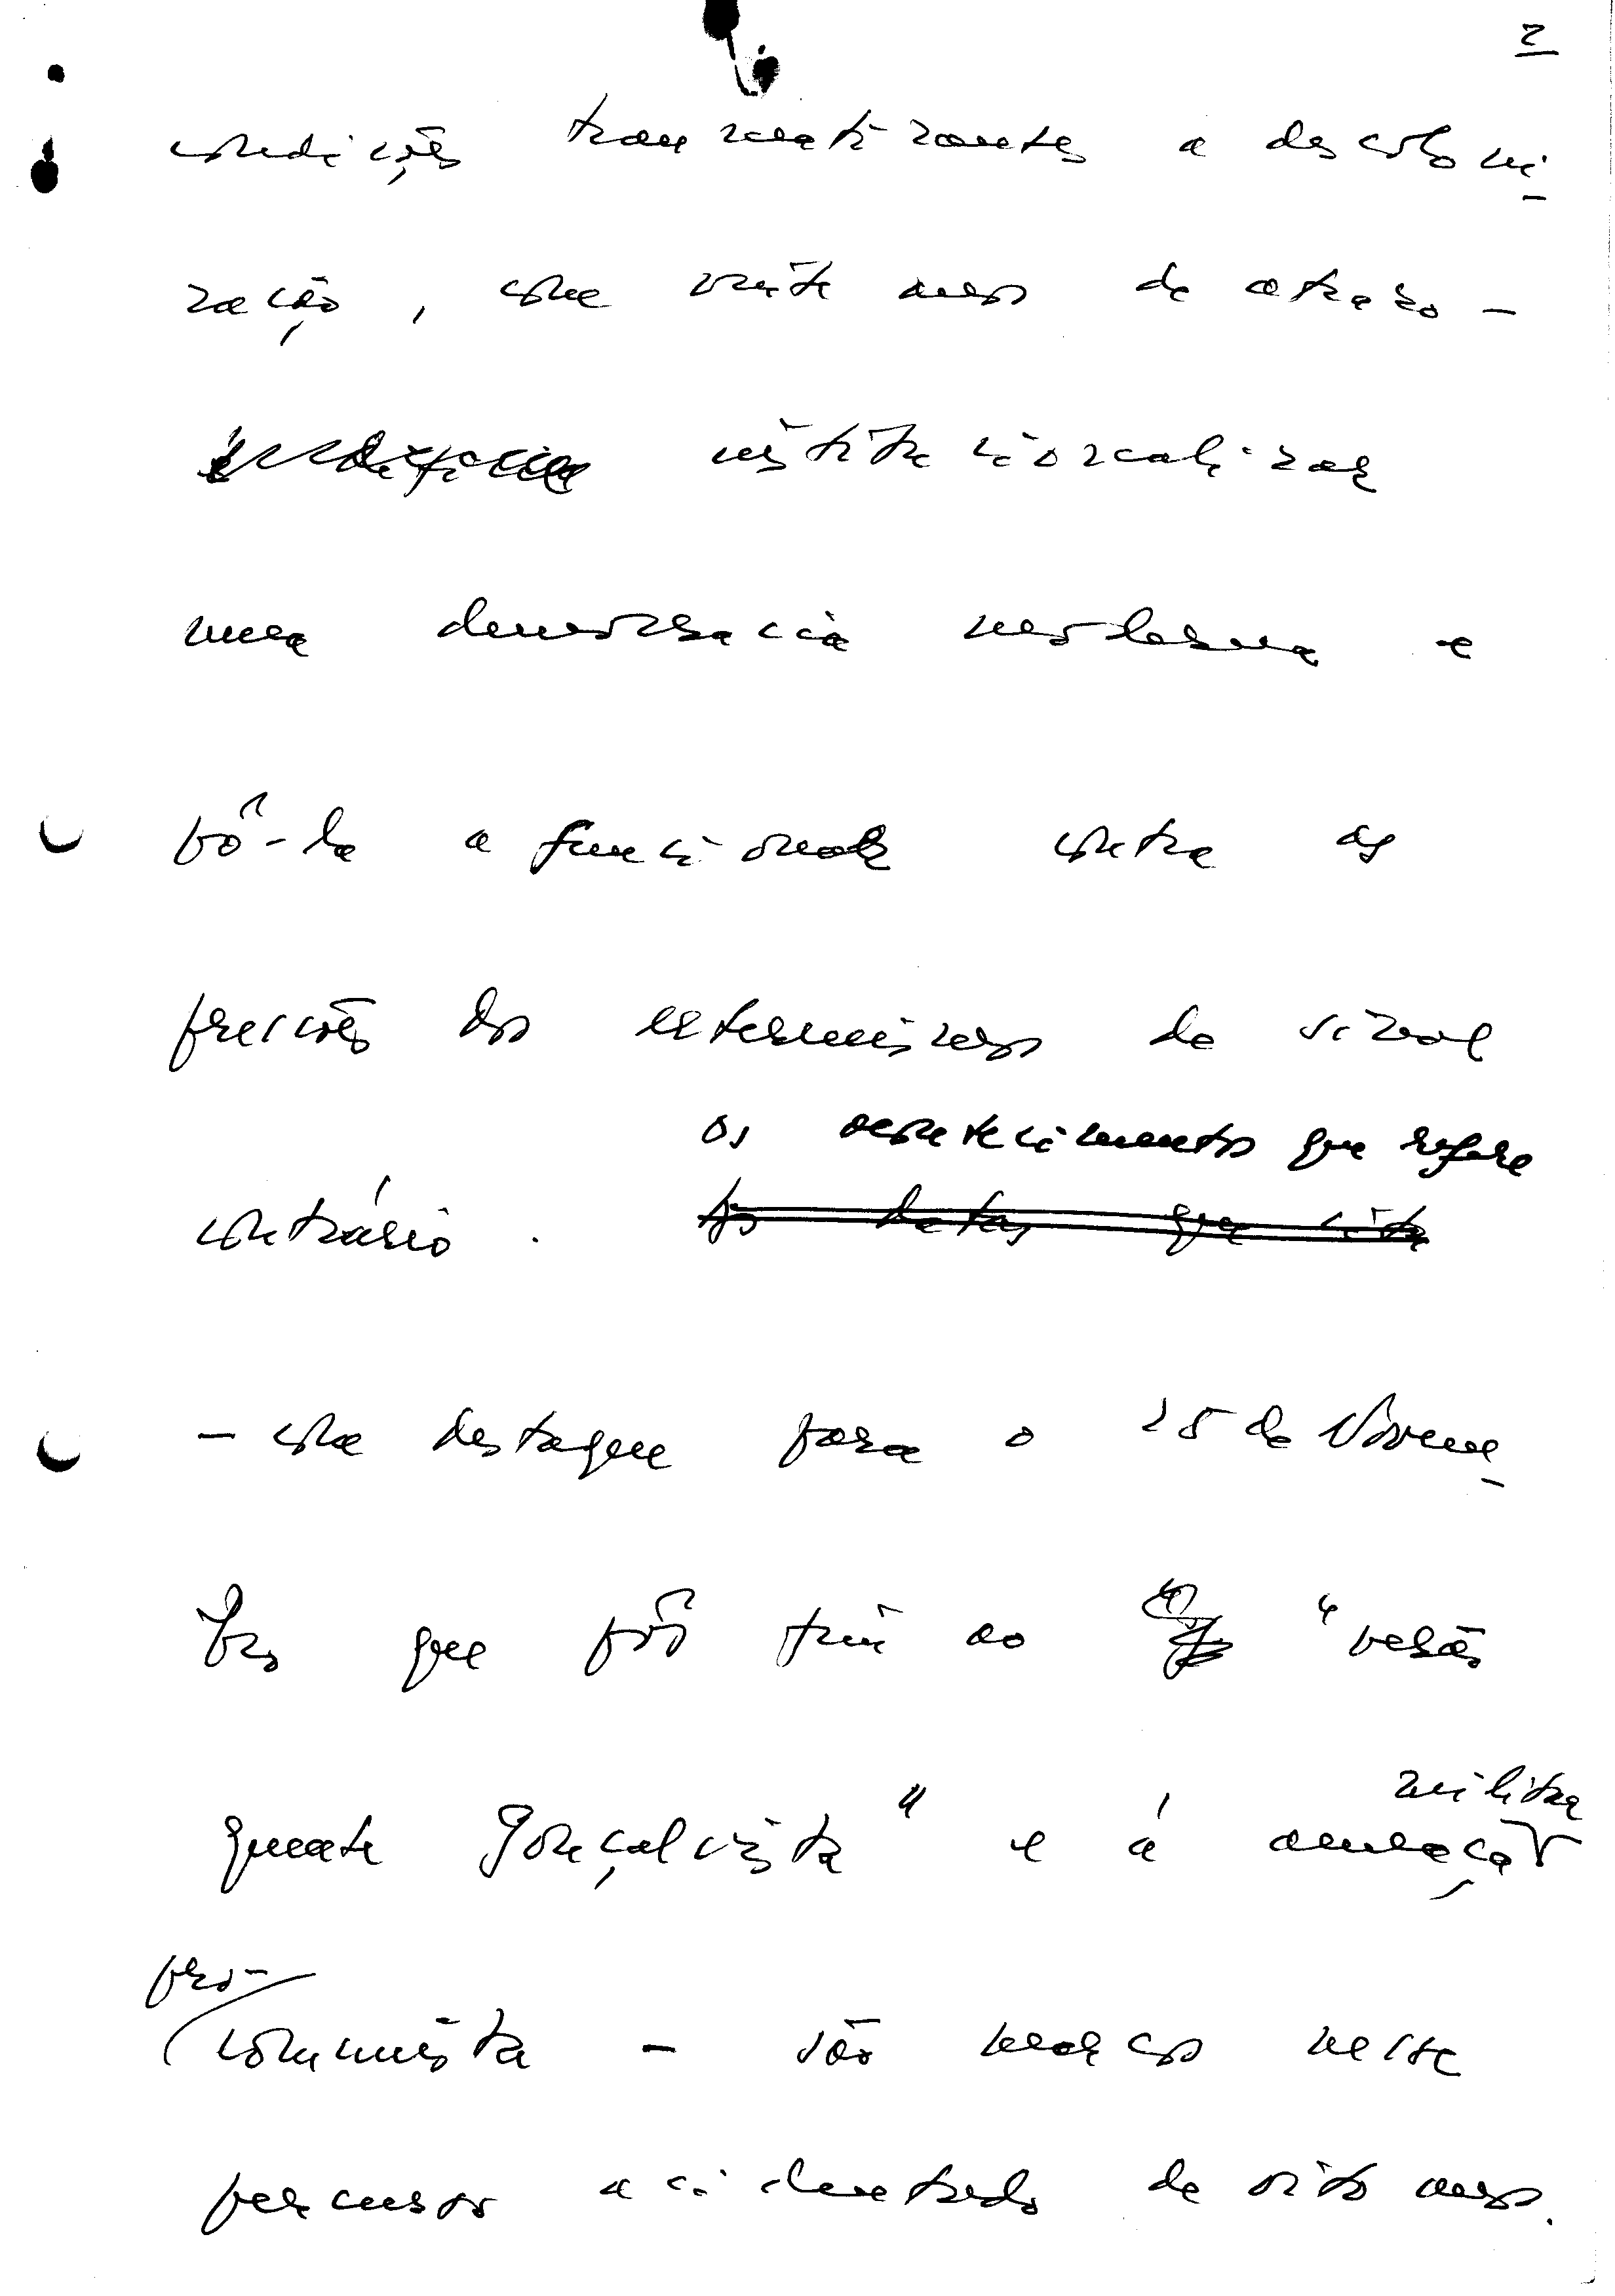 2
condições traumatizantes a descoloni-
zação, com vinte anos de atraso -
institucionalizar
uma democracia moderna e
pô-la a funcionar contra as
pressões dos extremismos de sinal
os acontecimentos que refere
contrário. As datas que cita
- com destaque para o 25 de Novem-
bro que pôs fim ao "verão
quente gonçalvista" e à ameaça militar
pró-
comunista - são marcos nesse
percurso acidentado de oito anos.